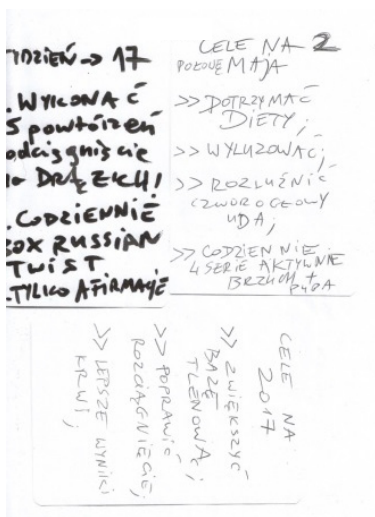 TYDZIEŃ -> 17
. WYKONAĆ
5 powtórzeń
podciągnięcie
na DRĄŻKU!
. CODZIENNIE
RUSSIAN
TWIST
. TYLKO AFIRMACJE
CELE NA 2
POŁOWĘ MAJA
>> DOTRZYMAĆ
DIETY;
>> WYLUZOWAĆ;
>> ROZLUŹNIĆ
CZWOROGŁOWY
UDA;
>> CODZIENNIE
4 SERIE AKTYWNIE
BRZUCH +
PUPA
CELE NA
2017
>> ZWIĘKSZYĆ
BAZĘ
TLENOWĄ;
>> POPRAWIĆ
ROZCIĄGNIĘCIE;
>> LEPSZE WYNIKI
KRWI;